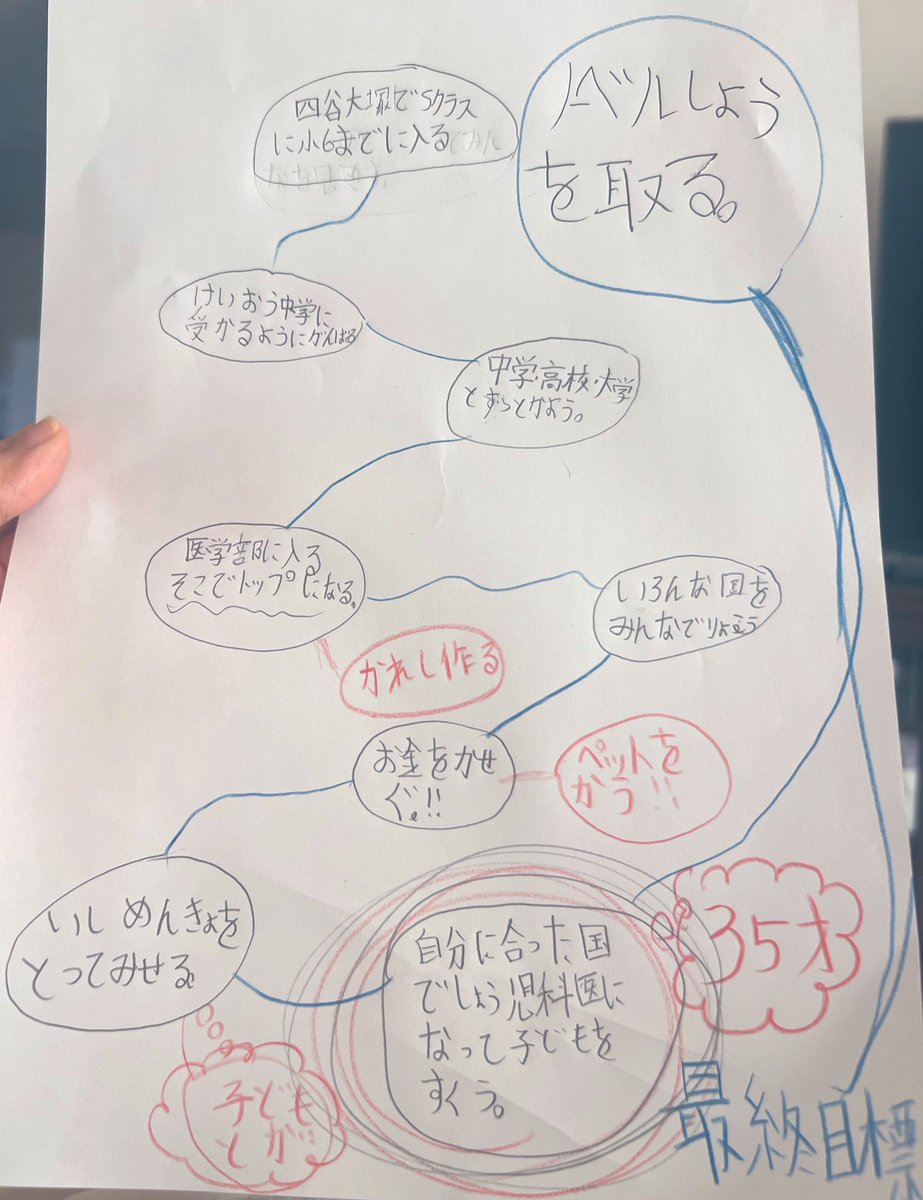 四谷大塚でSクラス
に小6までに入る
ノーベルしょう
を取る。
けいおう中学に
受かるようにがんばる
中学・高校・大学
とずっとかよう。
医学部に入る
そこでトップになる。
いろんな国を
みんなでりょこう
かれし作る
お金をかせ
ぐ。!!
ペットを
かう!!
いしめんきょを
とってみせる
自分に合った国
でしょう児科医に
なって子どもを
すくう。
35才
子ども
最終目標